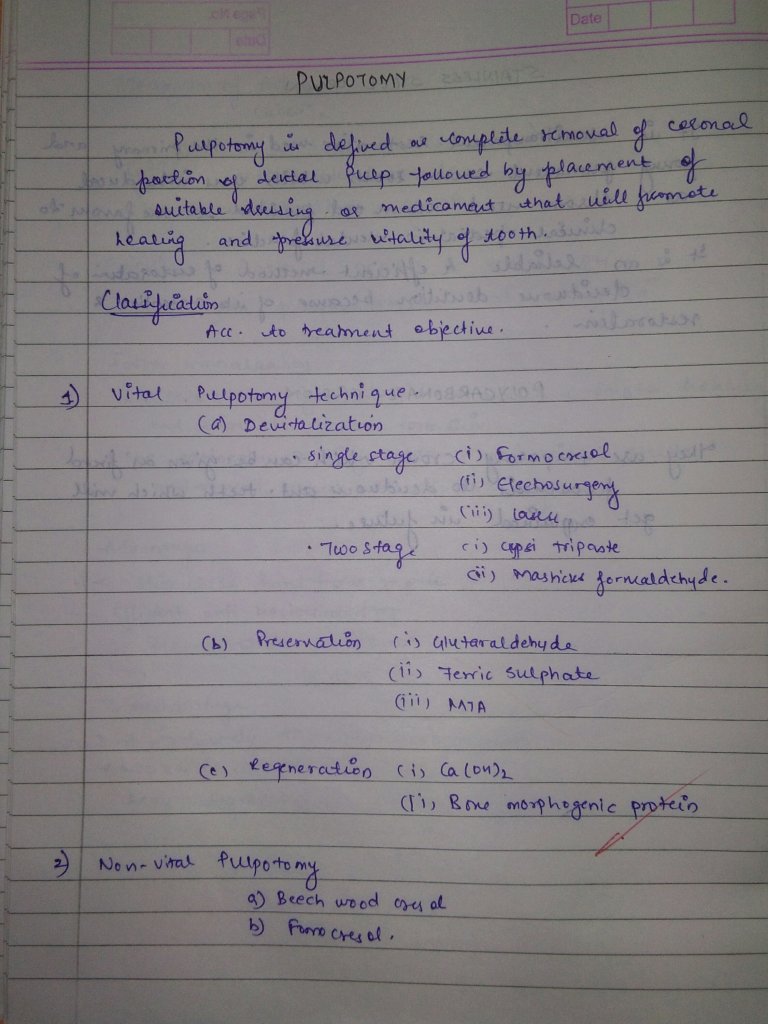 Date
PULPOTOMY
Pulpotomy is defined as complete removal of coronal
portion of dental pulp followed by placement of
suitable dressing or medicament that will promote
healing and preserve vitality of tooth.
Classification
Acc. to treatment objective.
1) Vital Pulpotomy technique.
(a) Devitalization
· single stage (i) Formocresol
(ii) Electrosurgery
(iii) Laser
· Two stage (i) Gysi tripaste
(ii) formaldehyde.
(b) Preservation (i) Glutaraldehyde
(ii) Ferric Sulphate
(iii) MTA
(c) Regeneration (i) Ca(OH)2
(ii) Bone morphogenic protein
2) Non-vital Pulpotomy
a) Beech wood
b)